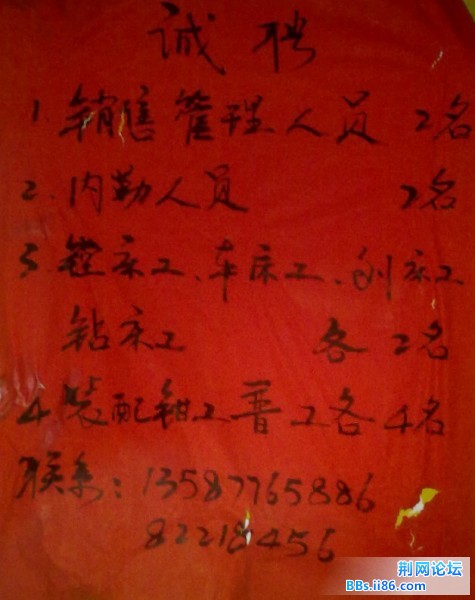 诚聘
1. 销售管理人员 2名
2. 内勤人员 2名
3. 镗床工、车床工、刨床工
钻床工 各2名
4. 装配钳工普工各4名
联系: 13587765886
82218456
荆网论坛
BBs.ii86.com